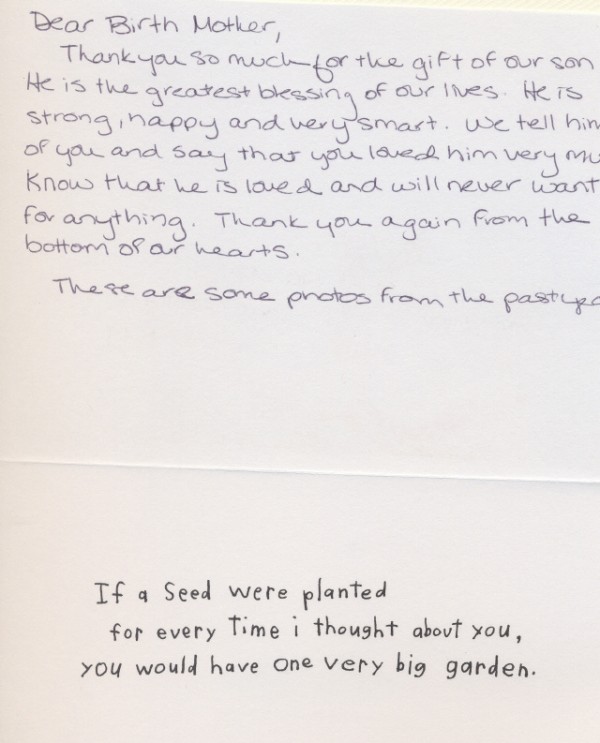 Dear Birth Mother,
Thank you so much for the gift of our son
He is the greatest blessing of our lives. He is
strong, happy and very smart. We tell him
of you and say that you loved him very mu
Know that he is loved and will never want
for anything. Thank you again from the
bottom of our hearts.
These are some photos from the past
If a Seed were planted
for every Time i thought about you,
you would have one very big garden.